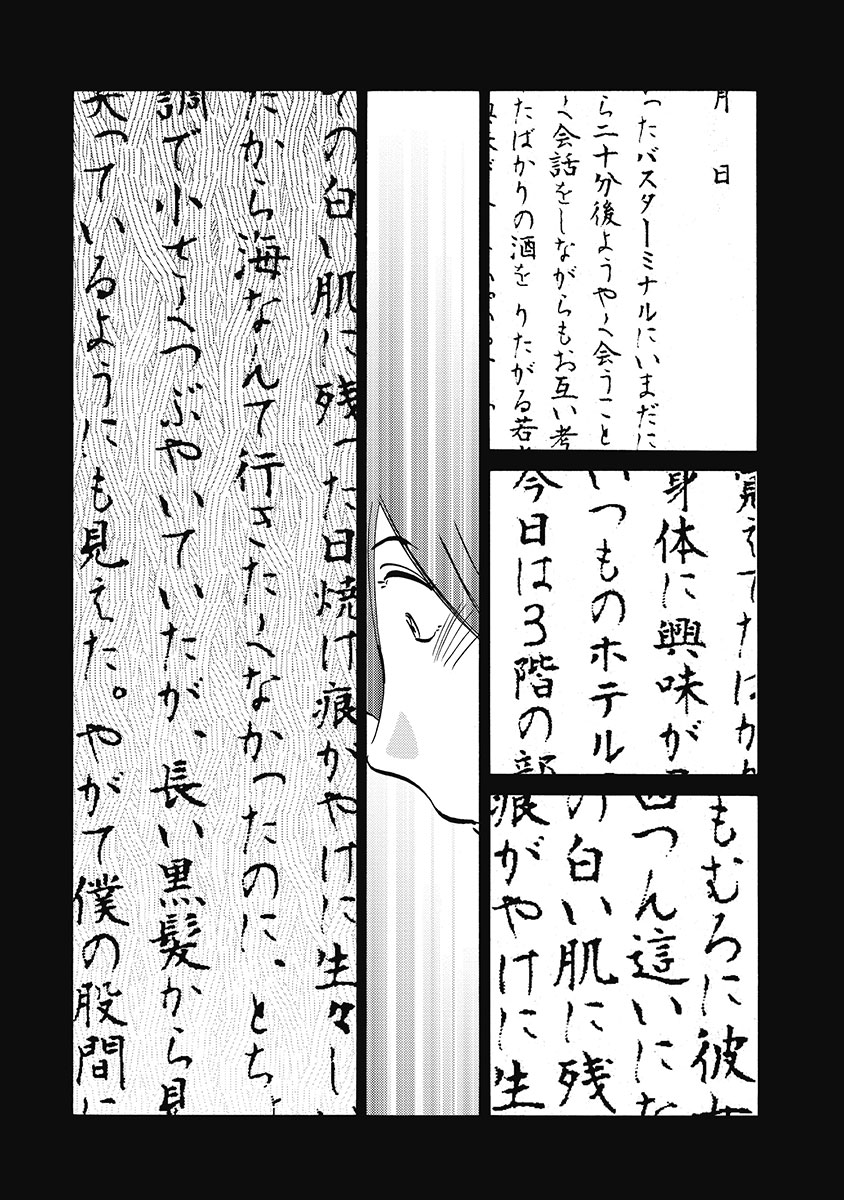 月 日
ったバスターミナルにいまだに
ら二十分後ようやく会うこと
く会話をしながらもお互い考
たばかりの酒を りたがる若
覚えたばかり
身体に興味が
いつものホテル
今日は3階の部
もむろに彼女
四つん這いにな
の白い肌に残
痕がやけに生
ての白い肌に残った日焼け痕がやけに生々しい
だから海なんて行きたくなかったのに、とち
調で小さくつぶやいていたが、長い黒髪から見
笑っているようにも見えた。やがて僕の股間に